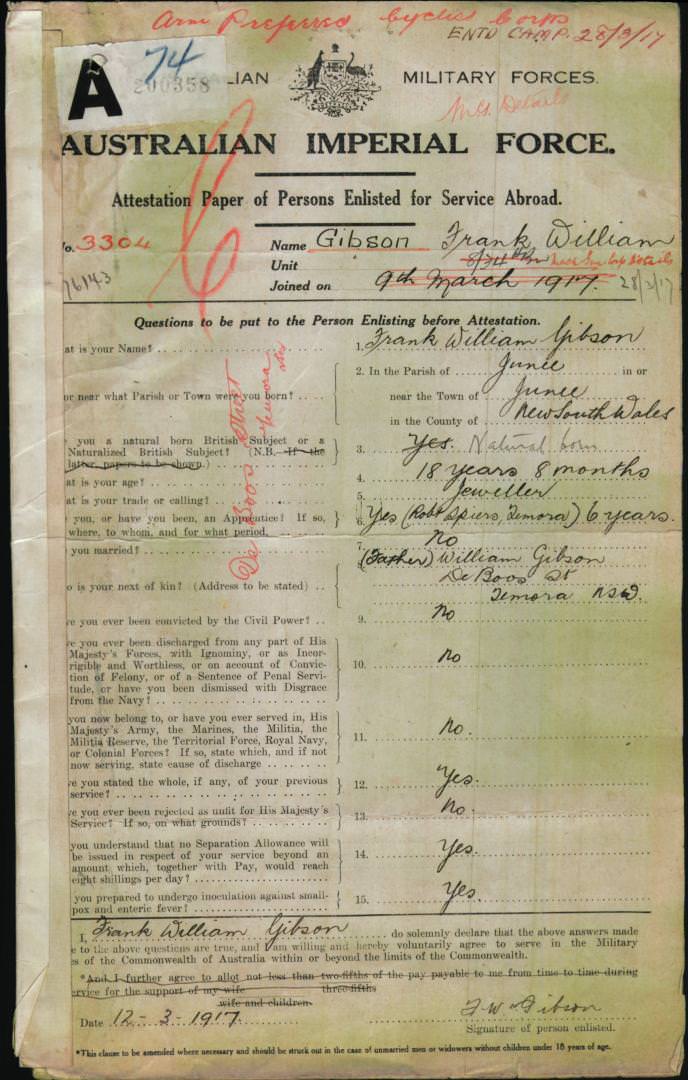 Arm Preferred Cyclist Corps
ENTD CAMP. 28/3/17
A 74
200358
LIAN MILITARY FORCES.
M.G. Details
AUSTRALIAN IMPERIAL FORCE.
Attestation Paper of Persons Enlisted for Service Abroad.
No. 3304
Name Gibson Frank William
Unit
Joined on 9th March 1917. 28/3/17
76143
Questions to be put to the Person Enlisting before Attestation.
at is your Name? 1. Frank William Gibson
2. In the Parish of Junee in or
or near what Parish or Town were you born? near the Town of Junee
in the County of New South Wales
you a natural born British Subject or a
Naturalized British Subject? (N.B. If the 3. Yes. Natural born
latter, papers to be shown.)
at is your age? 4. 18 years 8 months
at is your trade or calling? 5. Jeweller
you, or have you been, an Apprentice? If so, 6. Yes (Robt Spiers, Temora) 6 years.
where, to whom, and for what period.
you married? 7. No
8. (Father) William Gibson
o is your next of kin? (Address to be stated) De Boos St
Temora NSW.
De Boos Street
Temora
ve you ever been convicted by the Civil Power? 9. No
ve you ever been discharged from any part of His
Majesty's Forces, with Ignominy, or as Incor-
rigible and Worthless, or on account of Convic- 10. No
tion of Felony, or of a Sentence of Penal Servi-
tude, or have you been dismissed with Disgrace
from the Navy?
you now belong to, or have you ever served in, His
Majesty's Army, the Marines, the Militia, the
Militia Reserve, the Territorial Force, Royal Navy, 11. No.
or Colonial Forces? If so, state which, and if not
now serving, state cause of discharge
ve you stated the whole, if any, of your previous 12. Yes.
service?
ve you ever been rejected as unfit for His Majesty's 13. No.
Service? If so, on what grounds?
you understand that no Separation Allowance will
be issued in respect of your service beyond an 14. Yes.
amount which, together with Pay, would reach
eight shillings per day?
you prepared to undergo inoculation against small- 15. Yes.
pox and enteric fever?
I, Frank William Gibson do solemnly declare that the above answers made
e to the above questions are true, and I am willing and hereby voluntarily agree to serve in the Military
es of the Commonwealth of Australia within or beyond the limits of the Commonwealth.
*And I further agree to allot not less than two-fifths of the pay payable to me from time to time during
three-fifths
ervice for the support of my wife
wife and children.
Date 12-3-1917. F. W. Gibson
Signature of person enlisted.
*This clause to be amended where necessary and should be struck out in the case of unmarried men or widowers without children under 18 years of age.